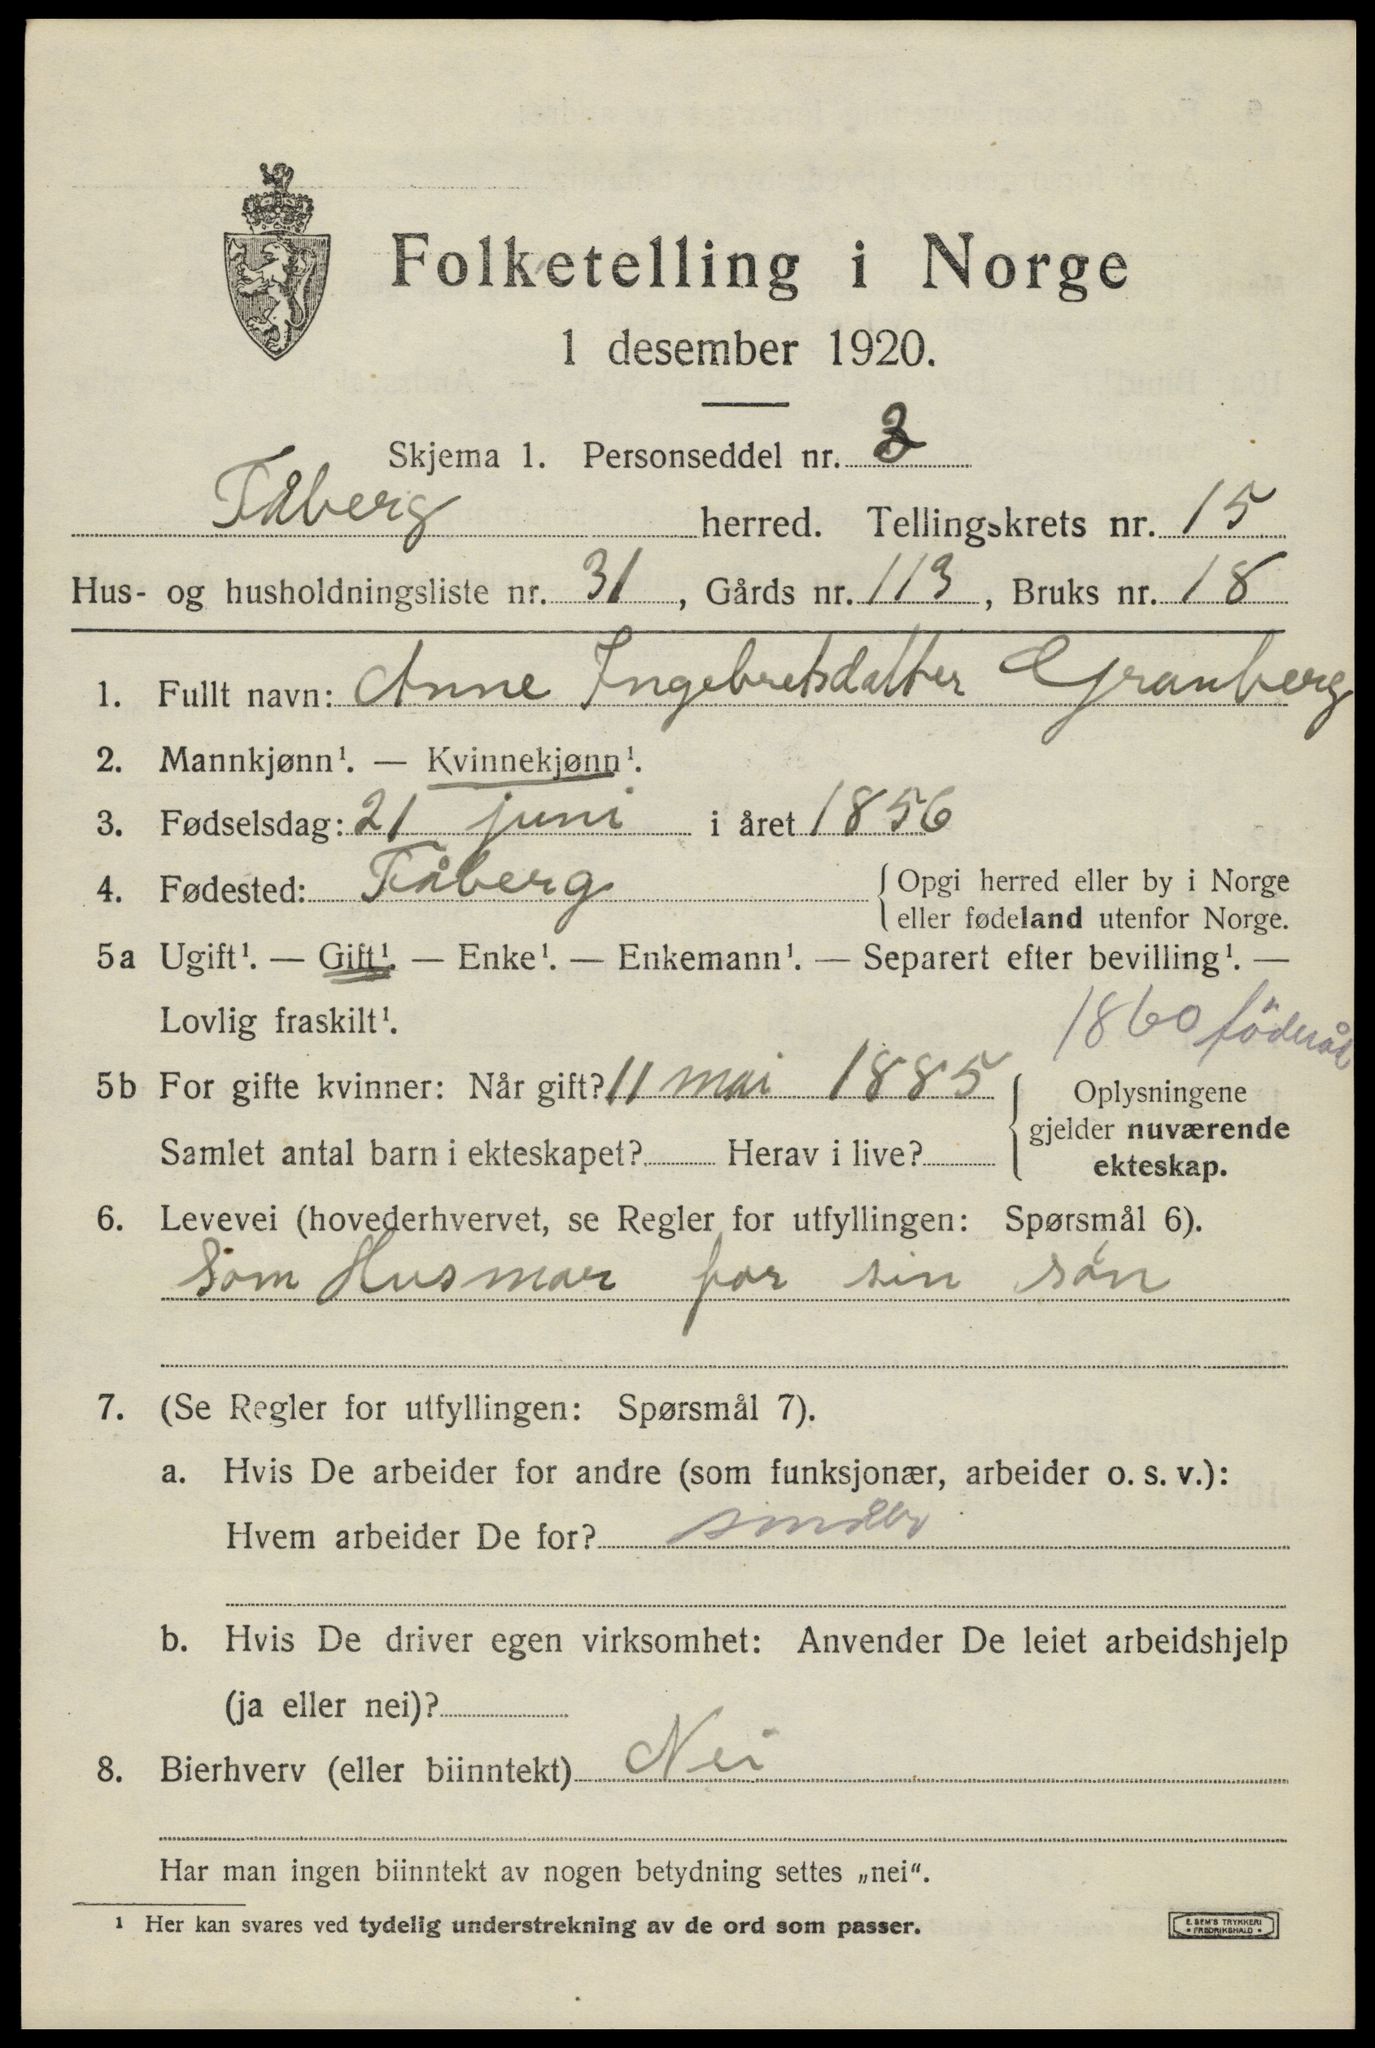 Folketelling i Norge
1 desember 1920.
Skjema 1. Personseddel nr.
Fåberg herred. Tellingskrets nr. 15
Hus- og husholdningsliste nr. 31, Gårds nr. 113, Bruks nr. 18
1. Fullt navn: Anne Ingebretsdatter Granberg
2. Mannkjønn¹. — Kvinnekjønn¹.
3. Fødselsdag: 21 juni i året 1856
4. Fødested: Fåberg { Opgi herred eller by i Norge
eller fødeland utenfor Norge.
5a Ugift¹. — Gift¹. — Enke¹. — Enkemann¹. — Separert efter bevilling¹. —
Lovlig fraskilt¹.
1860
5b For gifte kvinner: Når gift? 11 mai 1885 { Oplysningene
gjelder nuværende
Samlet antal barn i ekteskapet? Herav i live?
ekteskap.
6. Levevei (hovederhvervet, se Regler for utfyllingen: Spørsmål 6).
som Husmor for sin søn
7. (Se Regler for utfyllingen: Spørsmål 7).
a. Hvis De arbeider for andre (som funksjonær, arbeider o. s. v.):
Hvem arbeider De for?
b. Hvis De driver egen virksomhet: Anvender De leiet arbeidshjelp
(ja eller nei)?
8. Bierhverv (eller biinntekt) Nei
Har man ingen biinntekt av nogen betydning settes „nei“.
¹ Her kan svares ved tydelig understrekning av de ord som passer.
E. SEM'S TRYKKERI
FREDRIKSHALD